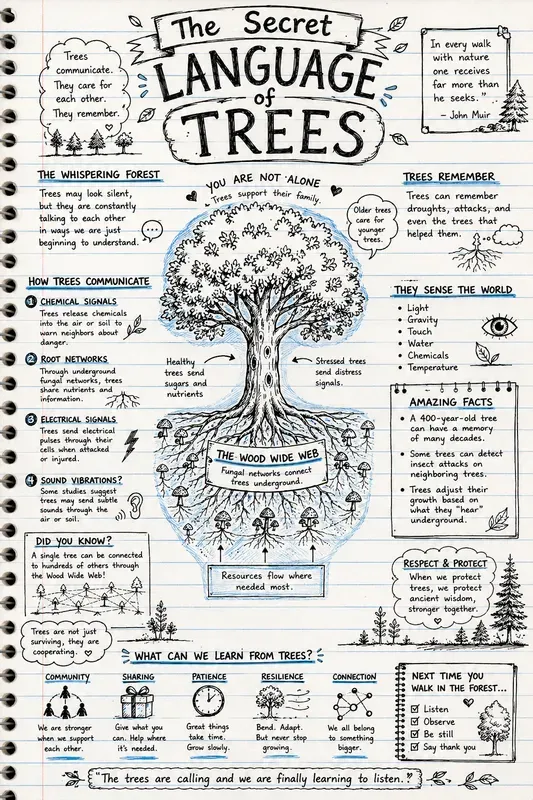 The Secret
LANGUAGE
of
TREES
Trees
communicate.
They care for
each other.
They remember.
In every walk
with nature
one receives
far more than
he seeks."
- John Muir
THE WHISPERING FOREST
Trees may look silent,
but they are constantly
talking to each other
in ways we are just
beginning to understand.
YOU ARE NOT ALONE
Trees support their family.
Older trees
care for
younger
trees.
TREES REMEMBER
Trees can remember
droughts, attacks, and
even the trees that
helped them.
HOW TREES COMMUNICATE
1 CHEMICAL SIGNALS
Trees release chemicals
into the air or soil to
warn neighbors about
danger.
2 ROOT NETWORKS
Through underground
fungal networks, trees
share nutrients and
information.
3 ELECTRICAL SIGNALS
Trees send electrical
pulses through their
cells when attacked
or injured.
4 SOUND VIBRATIONS?
Some studies suggest
trees may send subtle
sounds through the
air or soil.
Healthy
trees send
sugars and
nutrients
Stressed trees
send distress
signals.
THE WOOD WIDE WEB
Fungal networks connect
trees underground.
Resources flow where
needed most.
THEY SENSE THE WORLD
• Light
• Gravity
• Touch
• Water
• Chemicals
• Temperature
AMAZING FACTS
• A 400-year-old tree
can have a memory
of many decades.
• Some trees can detect
insect attacks on
neighboring trees.
• Trees adjust their
growth based on
what they "hear"
underground.
DID YOU KNOW?
A single tree can be connected
to hundreds of others through
the Wood Wide Web!
Trees are not just
surviving, they are
cooperating.
RESPECT & PROTECT
When we protect
trees, we protect
ancient wisdom,
stronger together.
WHAT CAN WE LEARN FROM TREES?
COMMUNITY
We are stronger
when we support
each other.
SHARING
Give what you
can. Help where
it's needed.
PATIENCE
Great things
take time.
Grow slowly.
RESILIENCE
Bend. Adapt.
But never stop
growing.
CONNECTION
We all belong
to something
bigger.
NEXT TIME YOU
WALK IN THE FOREST...
Listen
Observe
Be still
Say thank you
"The trees are calling and we are finally learning to listen."